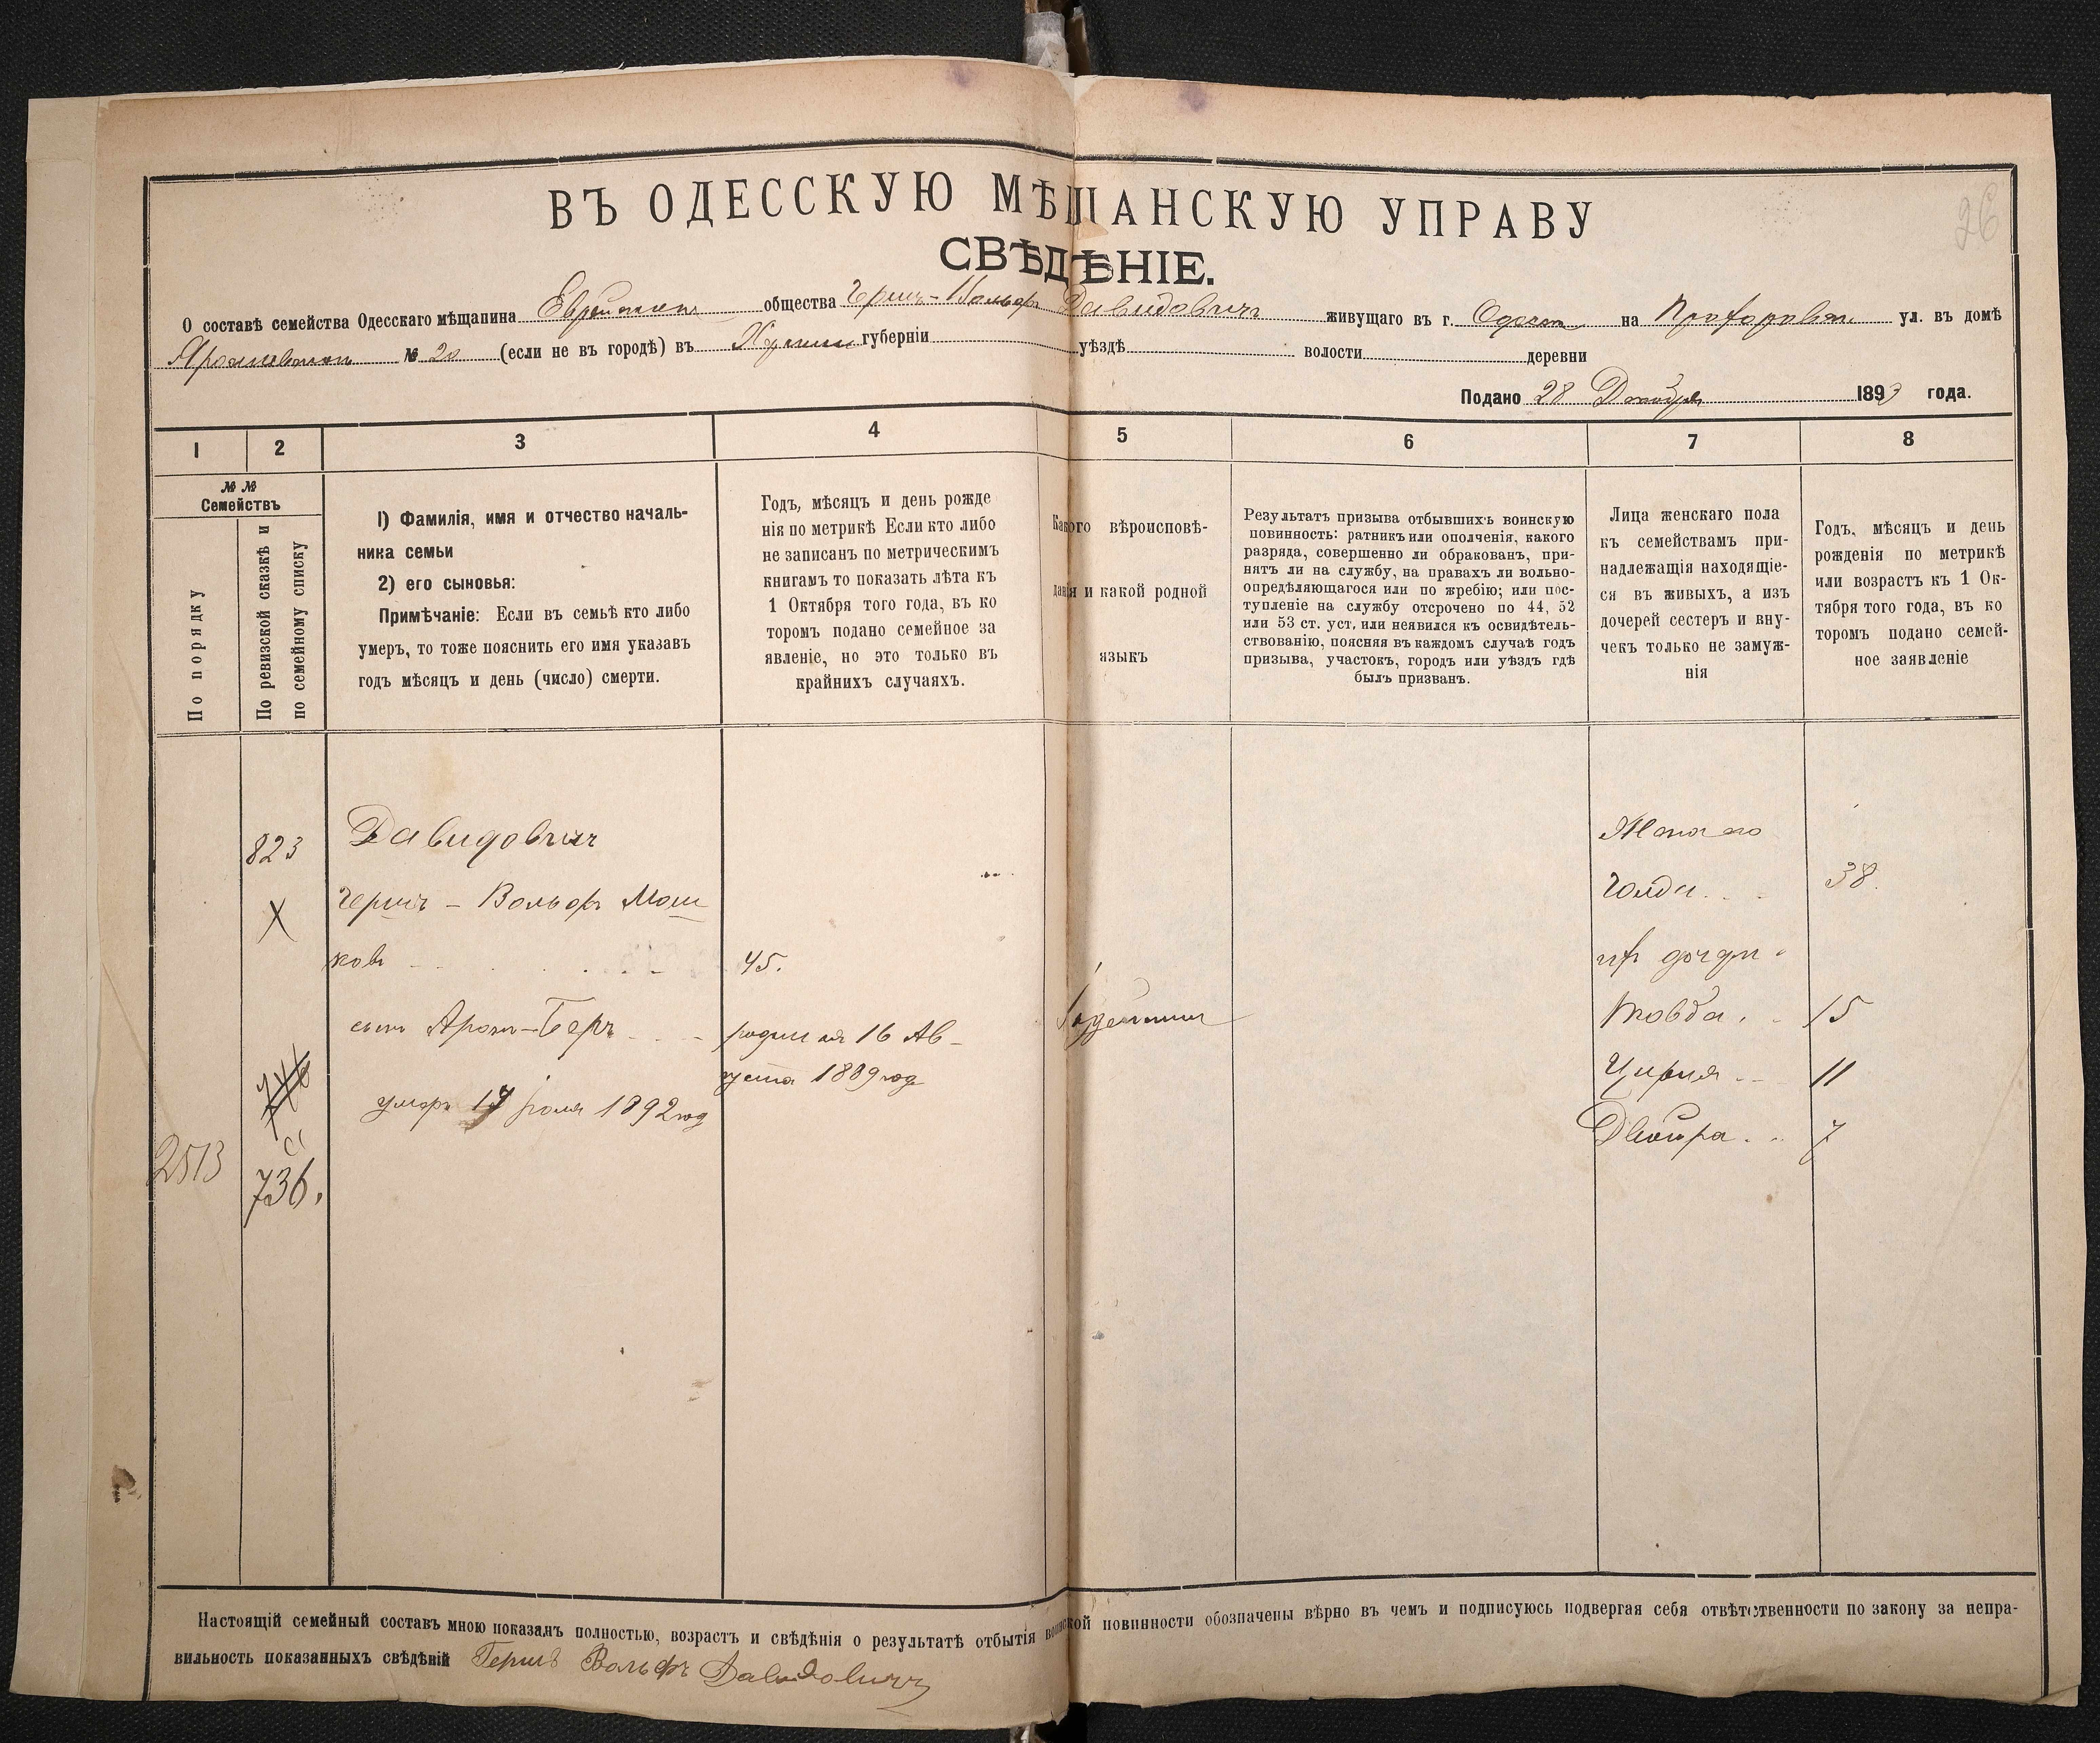 26
ВЪ ОДЕССКУЮ МѢЩАНСКУЮ УПРАВУ
СВѢДѢНІЕ.
О составѣ семейства Одесскаго мѣщанина общества Гершъ-Вольфъ Давидовичъ живущаго въ г. Одессѣ на Прохоровской ул. въ домѣ
№ 20 (если не въ городѣ) въ губерніи уѣздѣ волости деревни
Подано 28 Декабря 1893 года.
1 2 3 4 5 6 7 8
№ №
Семействъ
По порядку
По ревизской сказкѣ и
по семейному списку
1) Фамилія, имя и отчество началь-
ника семьи
2) его сыновья:
Примѣчаніе: Если въ семьѣ кто либо
умеръ, то тоже пояснить его имя указавъ
годъ мѣсяцъ и день (число) смерти.
Годъ, мѣсяцъ и день рожде
нія по метрикѣ Если кто либо
не записанъ по метрическимъ
книгамъ то показать лѣта къ
1 Октября того года, въ ко
торомъ подано семейное за
явленіе, но это только въ
крайнихъ случаяхъ.
Какого вѣроисповѣ-
данія и какой родной
языкъ
Результатъ призыва отбывшихъ воинскую
повинность: ратникъ или ополченія, какого
разряда, совершенно ли обракованъ, при-
нятъ ли на службу, на правахъ ли вольно-
опредѣляющагося или по жребію; или пос-
тупленіе на службу отсрочено по 44, 52
или 53 ст. уст, или неявился къ освидѣтель-
ствованію, поясняя въ каждомъ случаѣ годъ
призыва, участокъ, городъ или уѣздъ гдѣ
былъ призванъ.
Лица женскаго пола
къ семействамъ при-
надлежащія находящіе-
ся въ живыхъ, а изъ
дочерей сестеръ и вну-
чекъ только не замуж-
нія
Годъ, мѣсяцъ и день
рожденія по метрикѣ
или возрастъ къ 1 Ок-
тября того года, въ ко
торомъ подано семей-
ное заявленіе
823 Давидовичъ Жена его
X Гершъ - Вольфъ Мош Голда 38
ковъ 45. ихъ дочери
сынъ Аронъ-Беръ родился 16 Ав- Іудейскаго Товба 15
густа 1889 года Цирля 11
умеръ 17 Іюля 1892 года Двойра 7
2513 736.
Настоящій семейный составъ мною показанъ полностью, возрастъ и свѣдѣнія о результатѣ отбытія воинской повинности обозначены вѣрно въ чемъ и подписуюсь подвергая себя отвѣтственности по закону за непра-
вильность показанныхъ свѣдѣній Гершъ Вольфъ Давидовичъ